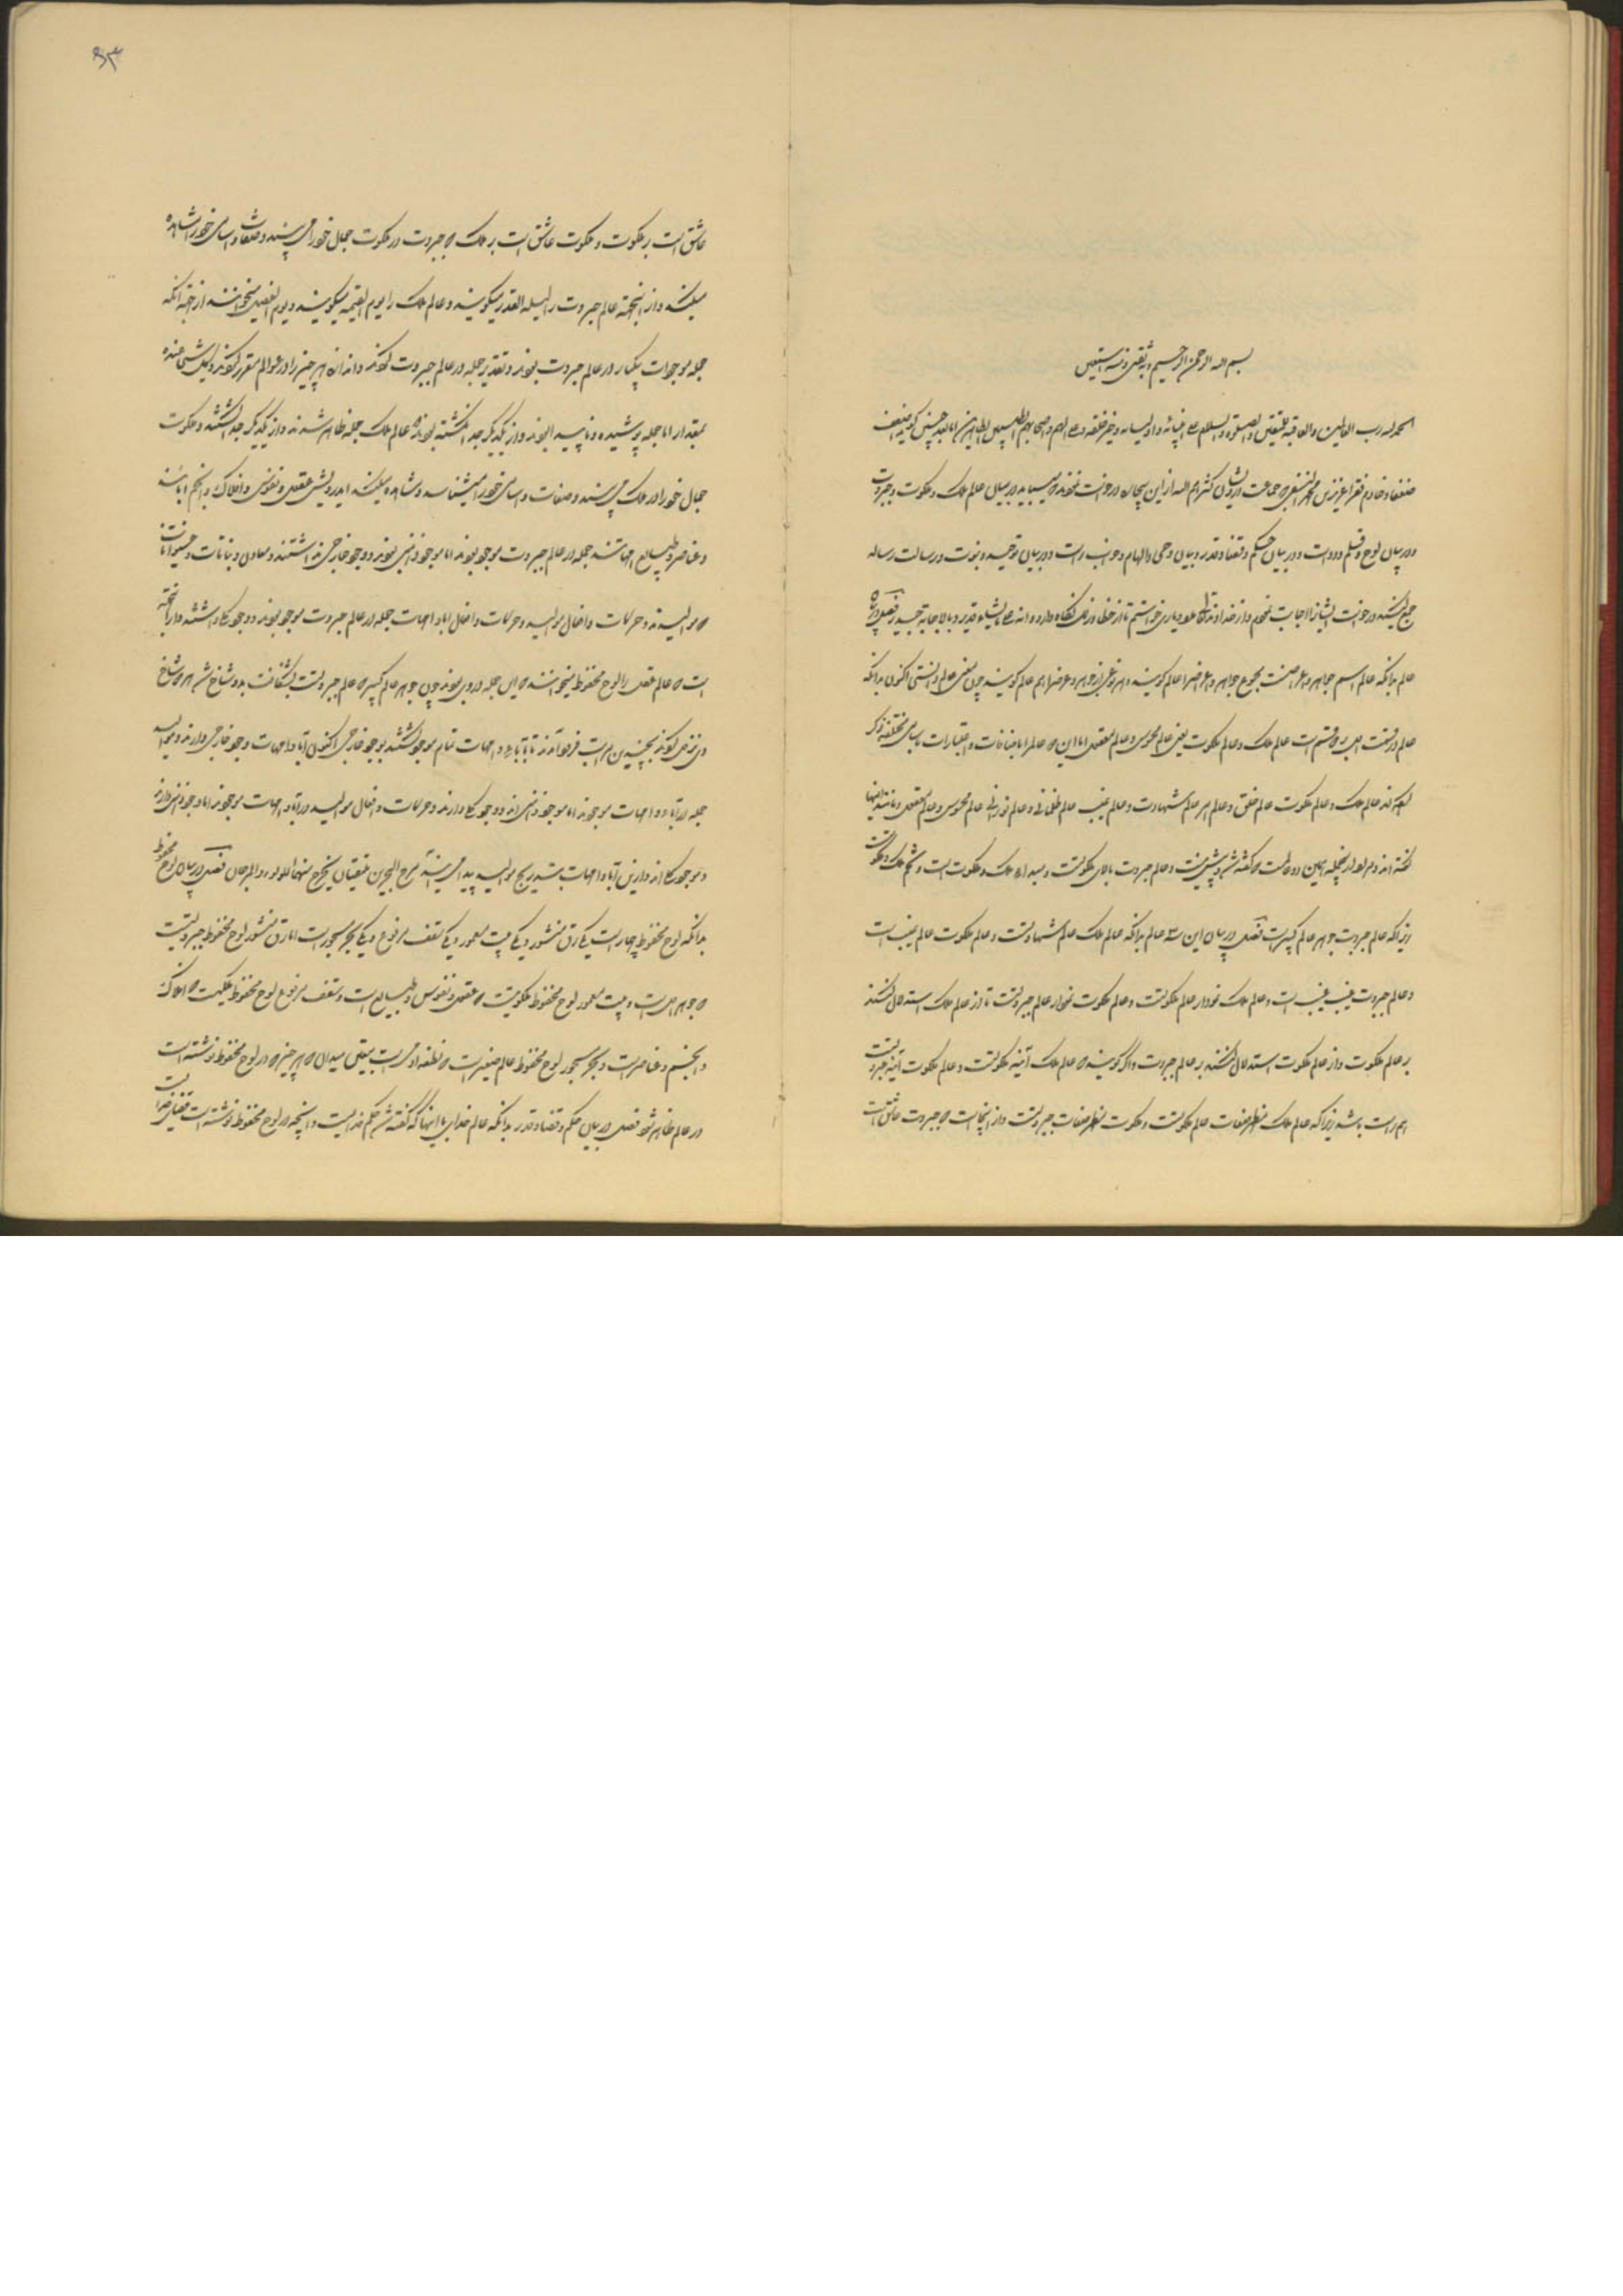 بسم الله الرحمن الرحیم و به ثقتی و نستعین
الحمد لله رب العالمین والعاقبة للمتقین والصلوة والسلام علی انبیائه و اولیائه و خیر خلقه و علی الهم و اصحابهم الطیبین الطاهرین اما بعد چنین گوید اضعف
ضعفا و خادم فقرا عزیز بن محمد النسفی که جماعت درویشان کثرهم الله ازین بیچاره درخواست نمودند که میباید در بیان عالم ملک و ملکوت و جبروت
و در بیان لوح و قلم و دوات و در بیان حکم و قضا و قدر و بیان وحی و الهام و خواب راست و در بیان توحید و نبوت و رسالت رساله
جمع کنید درخواست ایشانرا اجابت نمودم و از خداوند تعالی مدد و یاری خواستم تا از خطا و زلل نگاه دارد و انه علی ما یشاء قدیر و بالاجابة جدیر فصل در بیان
عالم بدانکه عالم اسم جواهر و اعراضست مجموع جواهر و اعراض را عالم گویند و هر نوعی از جواهر و اعراض را هم عالم گویند چون معنی عالم دانستی اکنون بدانکه
عالم در قسمت اول بر دو قسم است عالم ملک و عالم ملکوت یعنی عالم محسوس و عالم معقول اما این دو عالم را باضافات و اعتبارات باسامی مختلفه ذکر
کرده اند عالم ملک و عالم ملکوت عالم خلق و عالم امر عالم شهادت و عالم غیب عالم ظلمانی و عالم نورانی عالم محسوس و عالم معقول و مانند اینها
گفته اند و مراد از اینجمله همین دو عالمست که گفته شد و بیش نیست و عالم جبروت بالای ملکوتست و مبدا ملک و ملکوت است و تخم ملک و ملکوت
زیرا که عالم جبروت جوهر عالم کبیرست فصل در بیان این سه عالم بدانکه عالم ملک عالم شهادتست و عالم ملکوت عالم غیب است
و عالم جبروت غیب غیب است و عالم ملک نمودار عالم ملکوتست و عالم ملکوت نمودار عالم جبروتست تا از عالم ملک استدلال کنند
بر عالم ملکوت و از عالم ملکوت استدلال کنند بر عالم جبروت و اگر گویند که عالم ملک آینه ملکوتست و عالم ملکوت آینه جبروتست
هم راست باشد زیرا که عالم ملک مظهر صفات عالم ملکوتست و ملکوت مظهر صفات جبروتست و از اینجاست که جبروت عاشق است
۹۳
عاشق است بر ملکوت و ملکوت عاشق است بر ملک که جبروت در ملکوت جمال خود را می بیند و صفات و اسامی خود را مشاهده
میکند و از اینجهة عالم جبروت را لیلة القدر میگویند و عالم ملک را یوم القیمة میگویند و یوم الفصل میخوانند از جهة آنکه
جمله موجودات بیکبار در عالم جبروت بودند و تقدیر جمله در عالم جبروت کردند و اندازه هر چیز را در عوالم مقرر کردند و کل شی عنده
بمقدار اما جمله پوشیده و ناپیدا بودند و از یکدیگر جدا نگشته بودند عالم ملک جمله ظاهر شدند و از یکدیگر جدا گشتند و ملکوت
جمال خود را در ملک می بیند و صفات و اسامی خود را میشناسد و مشاهده میکند ایدرویش عقول و نفوس و افلاک و انجم اباءند
و عناصر و طبایع امهاتند جمله در عالم جبروت موجود بودند اما موجود ذهنی بودند و وجود خارجی نداشتند و معادن و نباتات و حیوانات
که موالیدند و حرکات و افعال موالید و حرکات و افعال اباء و امهات جمله در عالم جبروت موجود بودند و وجود نداشتند و از اینجهة
است که عالم عقل را لوح محفوظ میخوانند که این جمله در وی بودند چون جوهر عالم کبیر که عالم جبروتست بشکافت بدو شاخ شد هر دو شاخ
روی تنزل کردند بچندین مراتب فرود آمدند تا آباء و امهات تمام موجود گشتند بوجود خارجی اکنون آباء و امهات وجود خارجی دارند و موالید
جمله در آباء و امهات موجودند اما موجود ذهنی اند و وجود دارند و حرکات و افعال موالید در آباء و امهات موجودند اما وجود ذهنی دارند
و ازین آباء و امهات بتدریج موالید پیدا می آیند مرج البحرین یلتقیان یخرج منهما اللؤلؤ و المرجان فصل در بیان لوح محفوظ
بدانکه لوح محفوظ چهارست یکی رق منشور و یکی بیت معمور و یکی سقف مرفوع و یکی بحر مسجورست اما رق منشور لوح محفوظ جبروتیست
که جوهر اول است و بیت معمور لوح محفوظ ملکوتیست که عقول و نفوس و طبایع است و سقف مرفوع لوح محفوظ ملکیست که افلاک
و انجم و عناصرست و بحر مسجور لوح محفوظ عالم صغیرست که نطفه آدمی است بیقین میدان که هر چیز که در لوح محفوظ نوشته است
در عالم ظاهر شود فصل در بیان حکم و قضا و قدر بدانکه عالم خدای با اینها که گفته شد حکم خدا است و آنچه در لوح محفوظ نوشته است قضای خدا